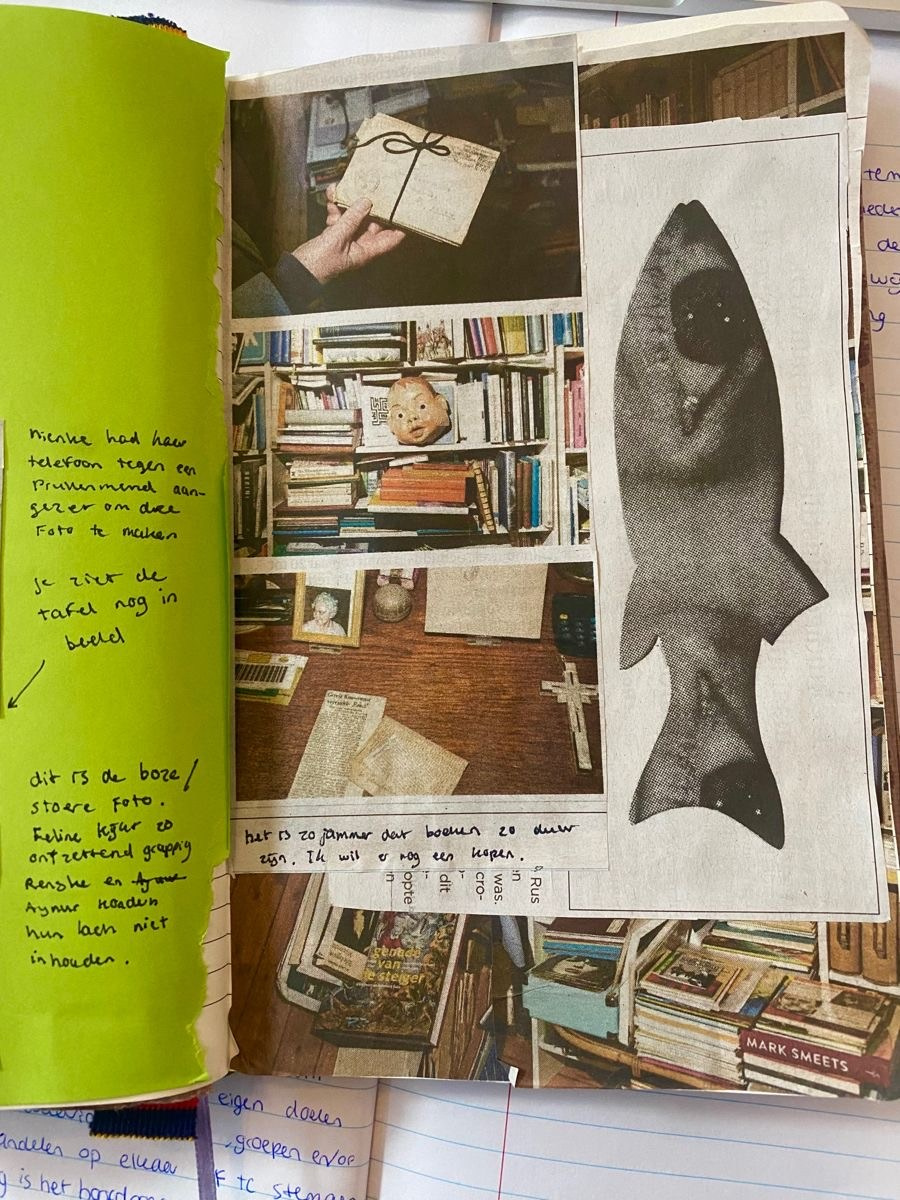 nienke had haar
telefoon tegen een
Prullenmend aan-
gezet om deze
Foto te maken
je ziet de
tafel nog in
beeld
dit is de boze/
stoere Foto.
Feline kijkt zo
ontzettend grappig
Renske en
Aynur konden
hun lach niet
inhouden.
het is zo jammer dat boeken zo duur
zijn. Ik wil er nog een kopen.
Rus
was.
cro-
dit
opte
genade
van
de steiger
MARK SMEETS
de
eigen doelen
groepen en/of
andelen op elkaar
g is het